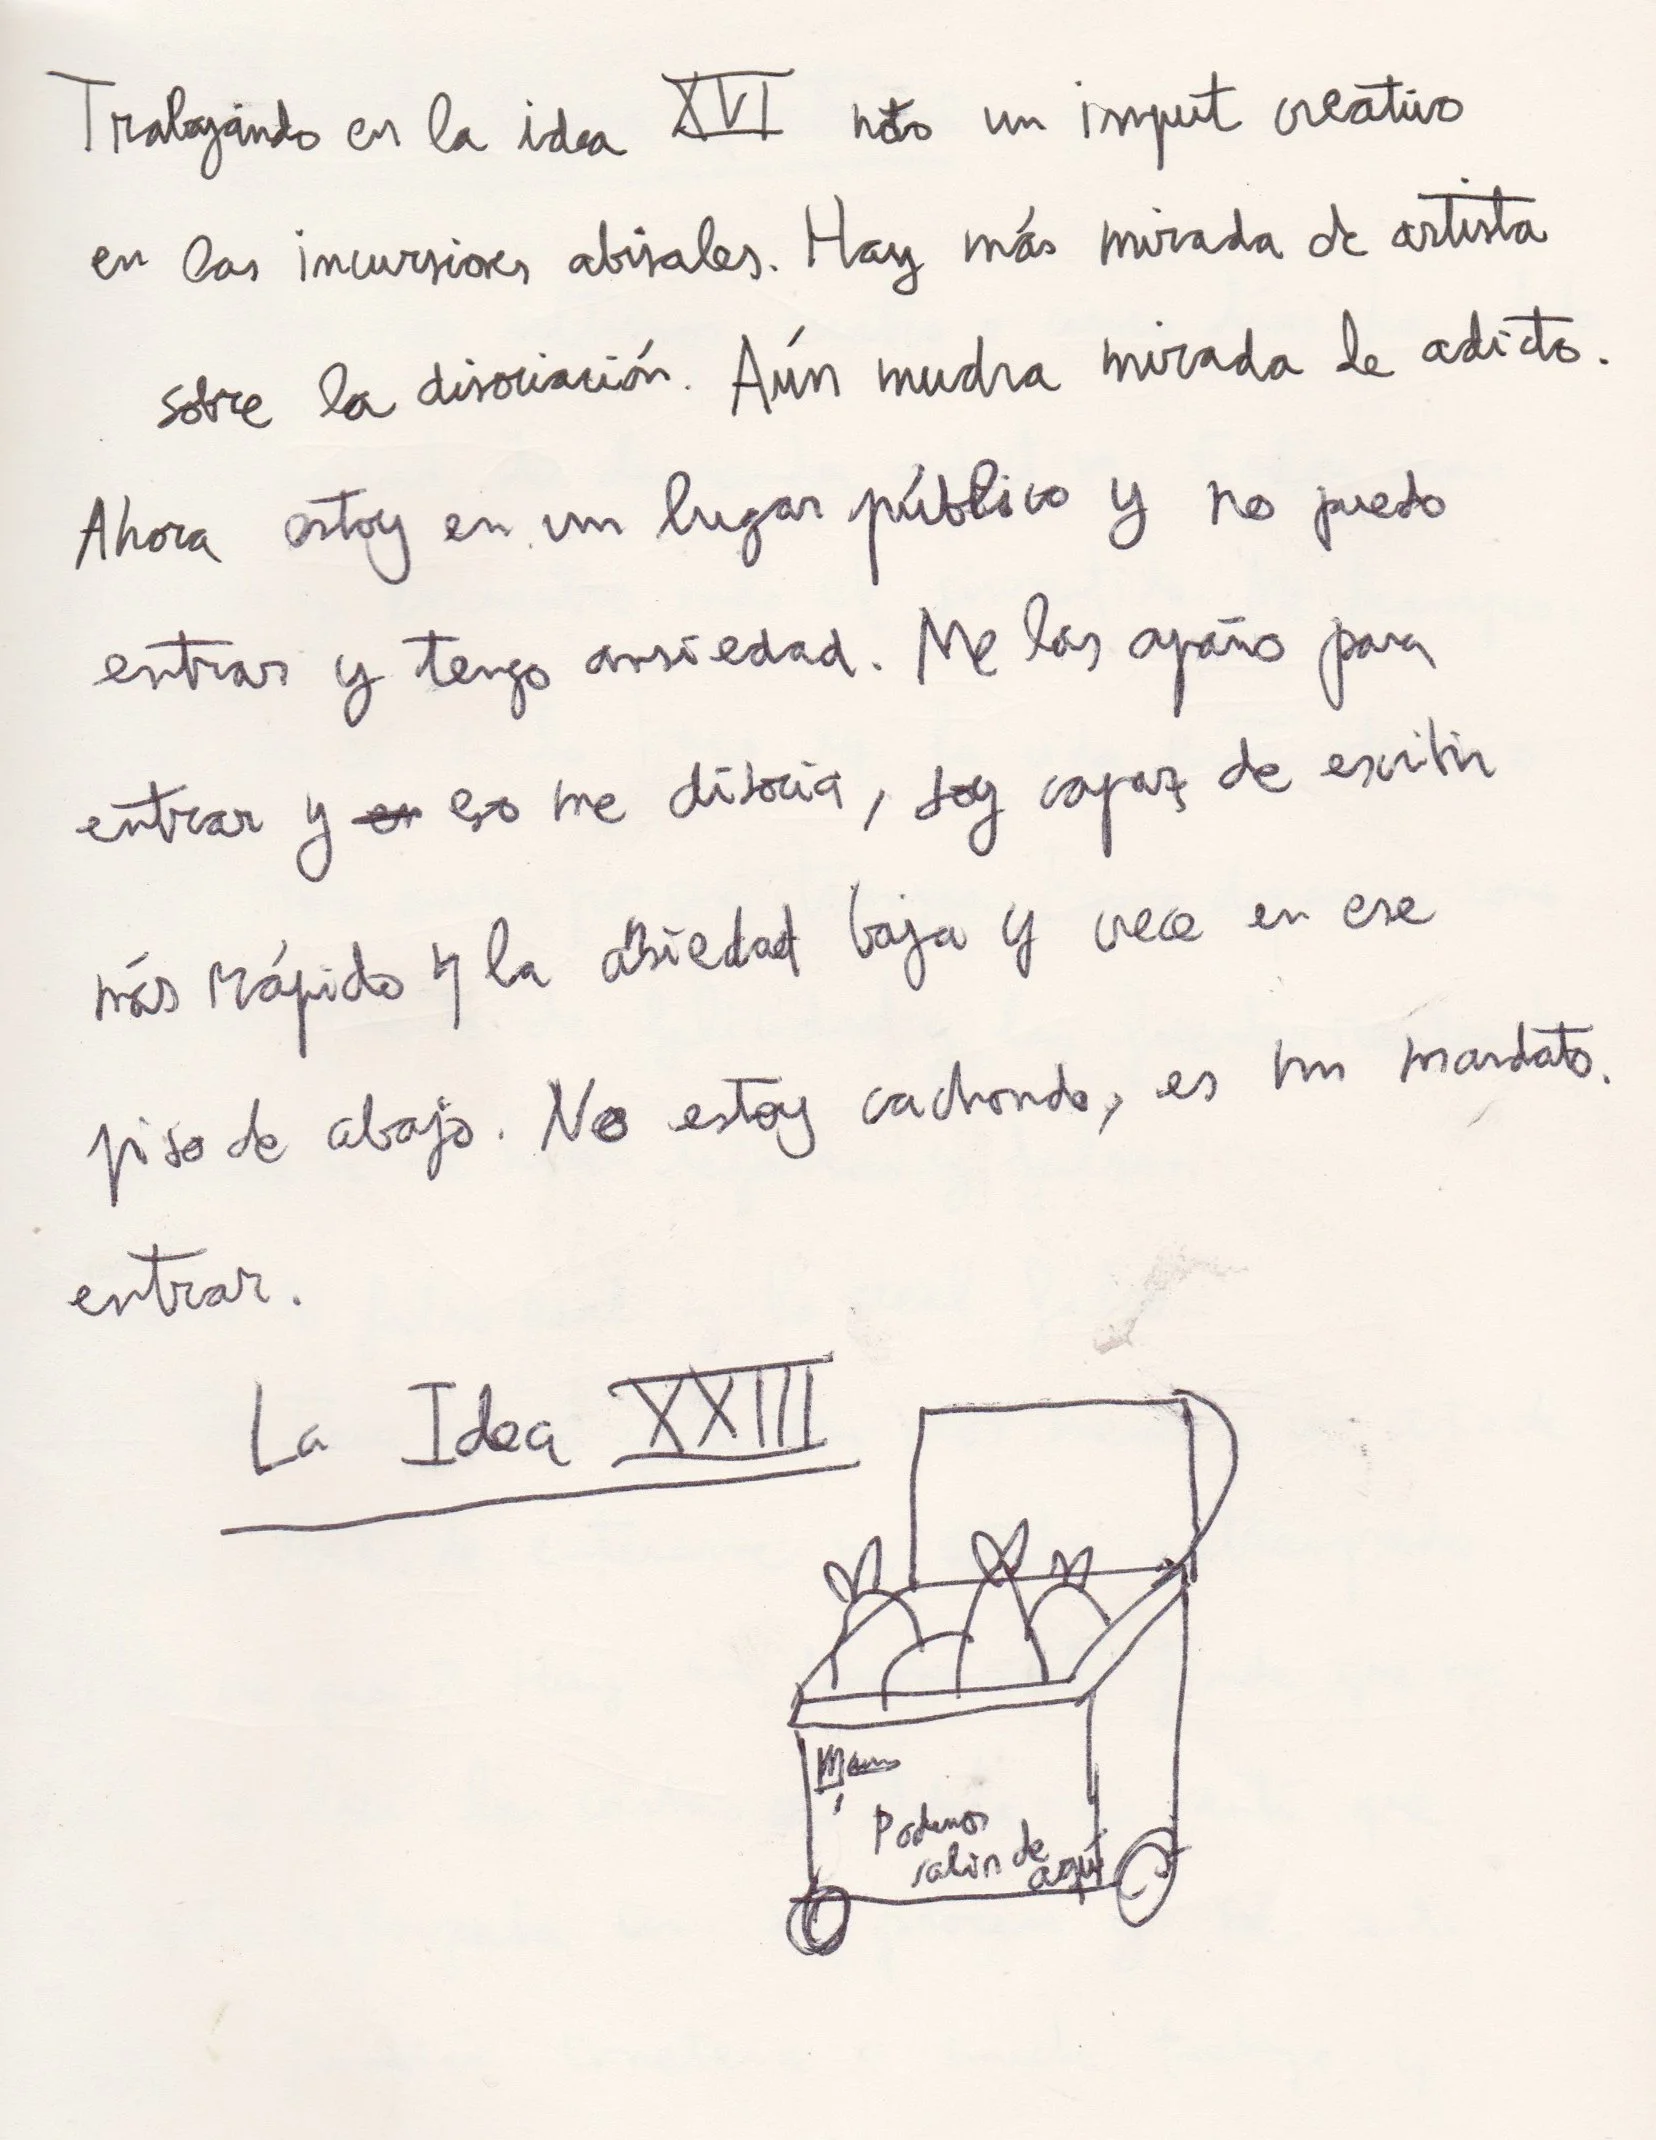 Trabajando en la idea XVI noto un input creativo
en las incursiones abisales. Hay más mirada de artista
sobre la disociación. Aún mucha mirada de adicto.
Ahora estoy en un lugar público y no puedo
entrar y tengo ansiedad. Me las apaño para
entrar y eso me disocia, soy capaz de escribir
más rápido y la ansiedad baja y crece en ese
piso de abajo. No estoy cachondo, es un mandato.
entrar.
La Idea XXIII
Podemos
salir de
aquí